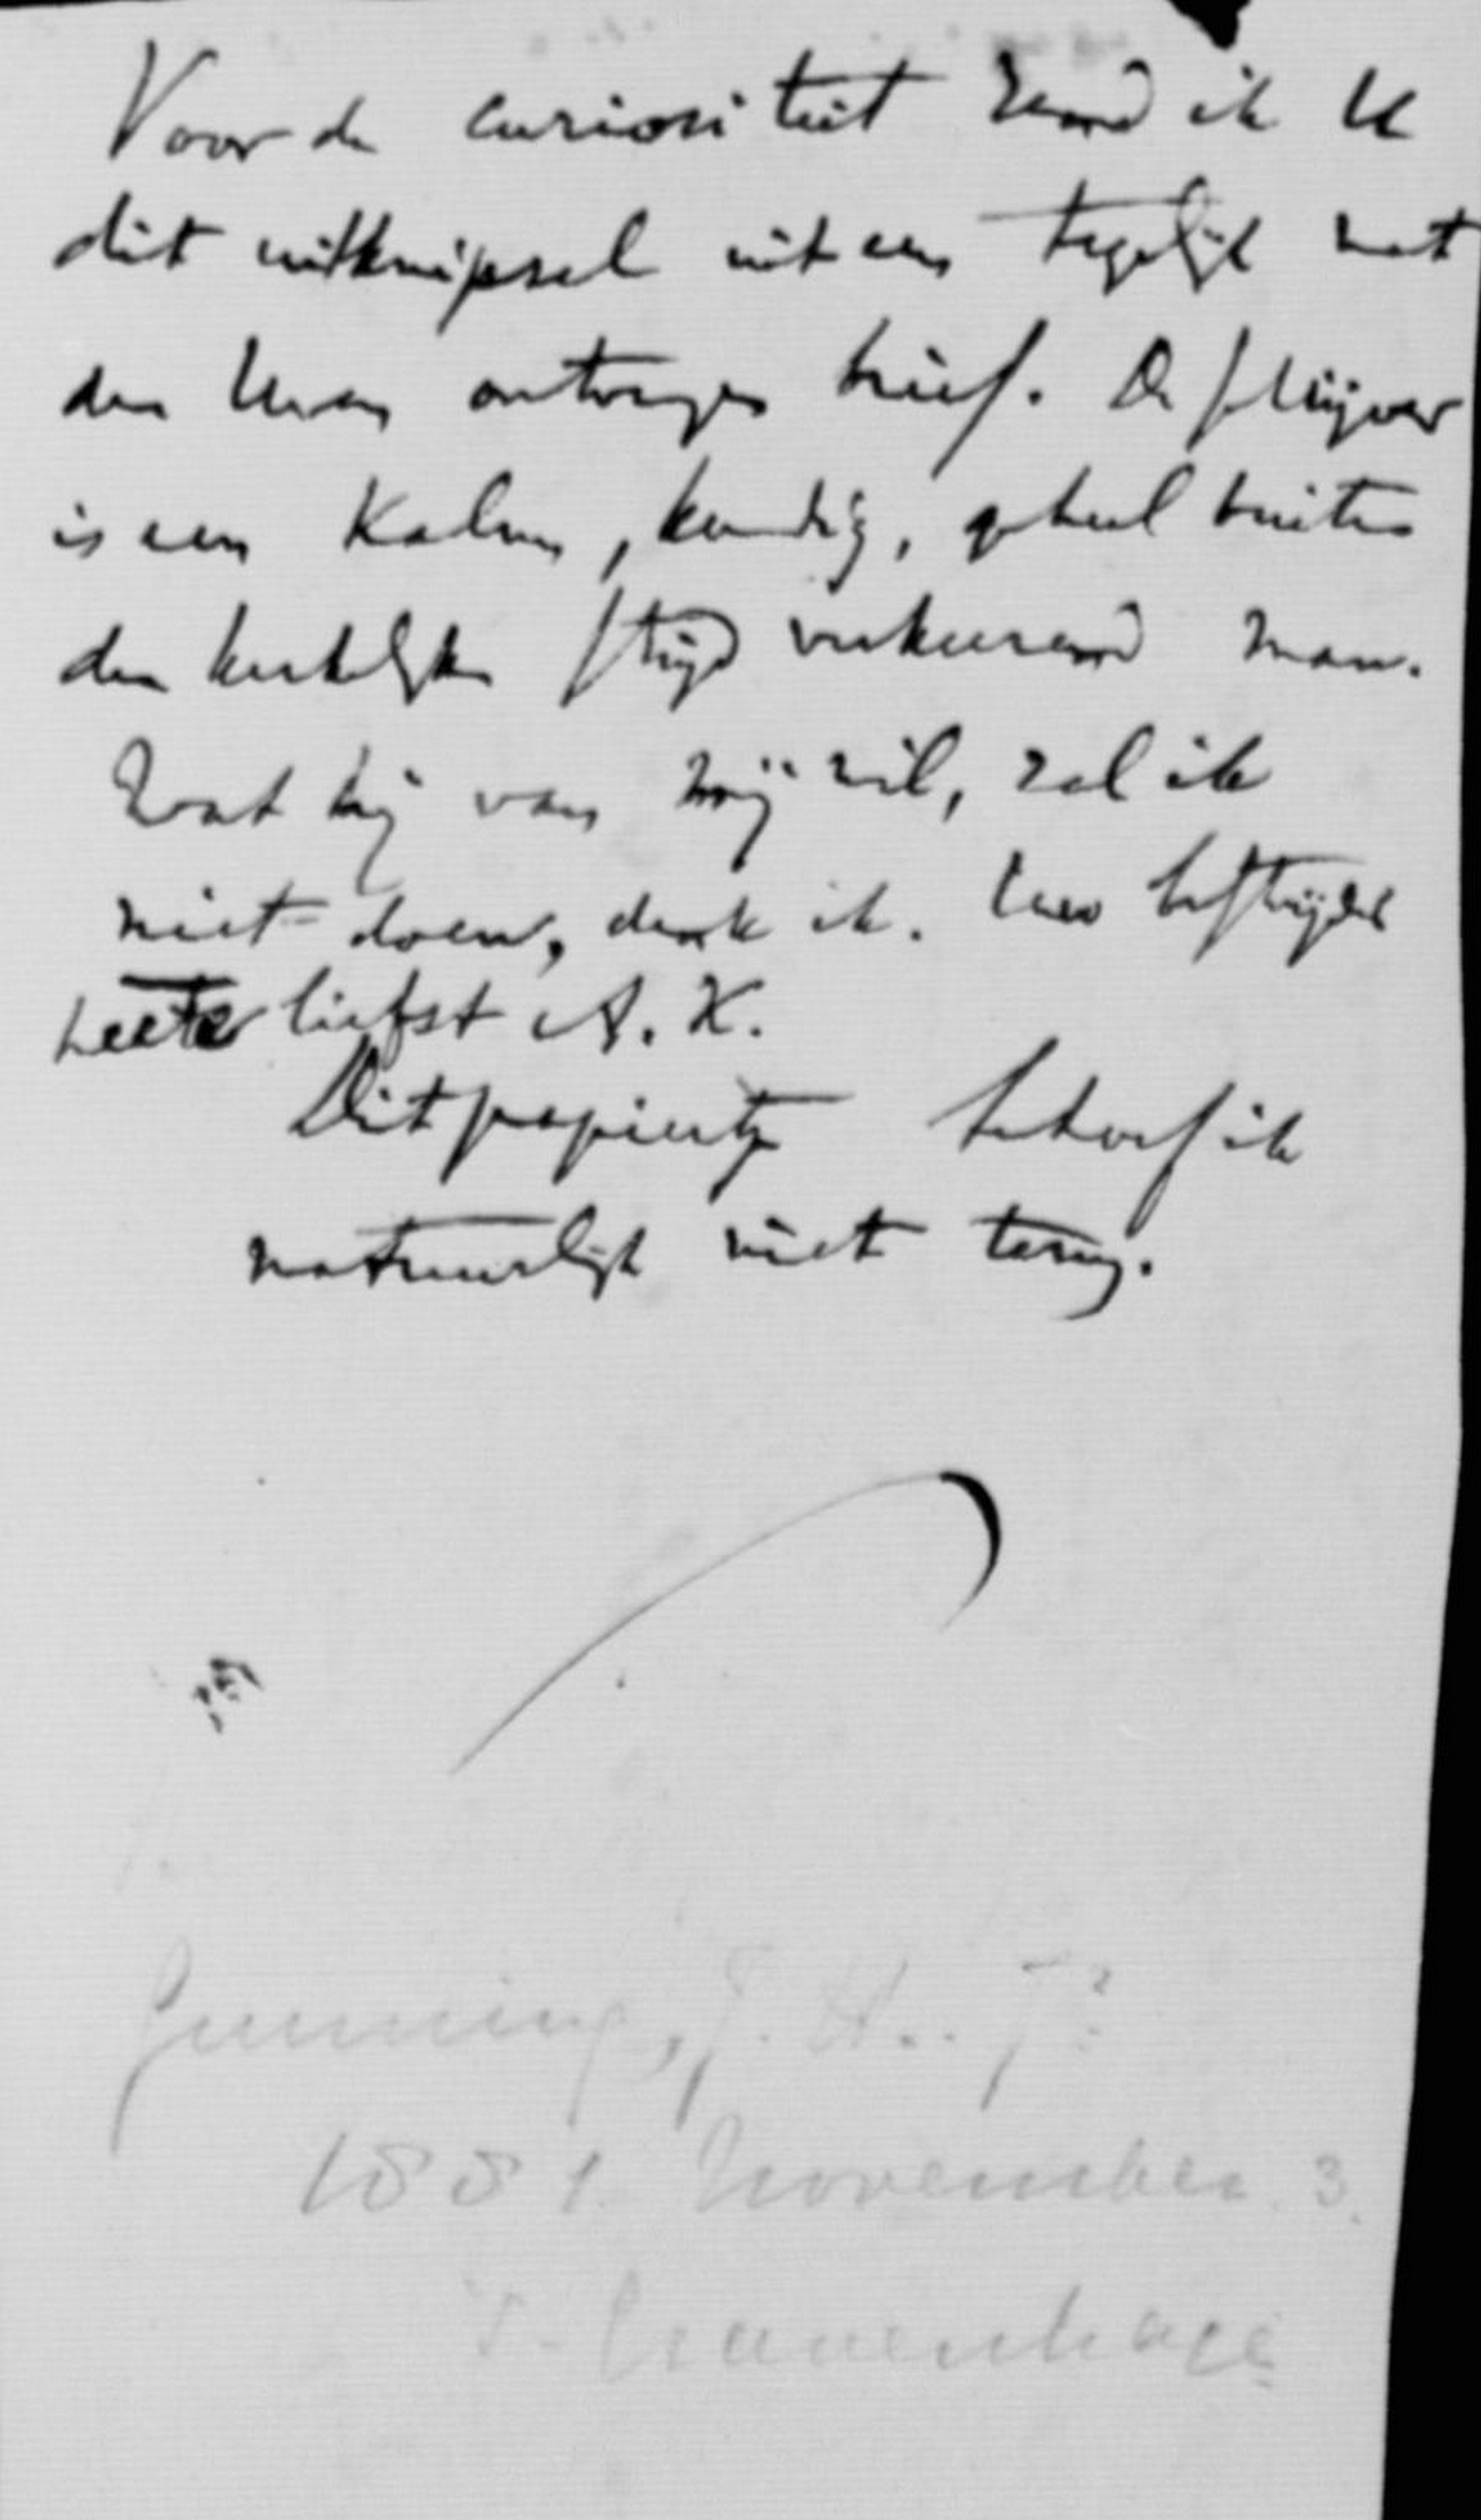 Voor de curiositeit zend ik U
dit uitknipsel uit een tegelijk met
den Uwen ontvangen brief. De schrijver
is een kalm, kundig, geheel buiten
den kerkelijken strijd verkeerend man.
Wat hij van mij wil, zal ik
niet doen, denk ik. Uw
liefst A. K.
Dit papiertje behoef ik
natuurlijk niet terug.
Gunning, J. H.. Jr
1881 November 3.
's-Gravenhage